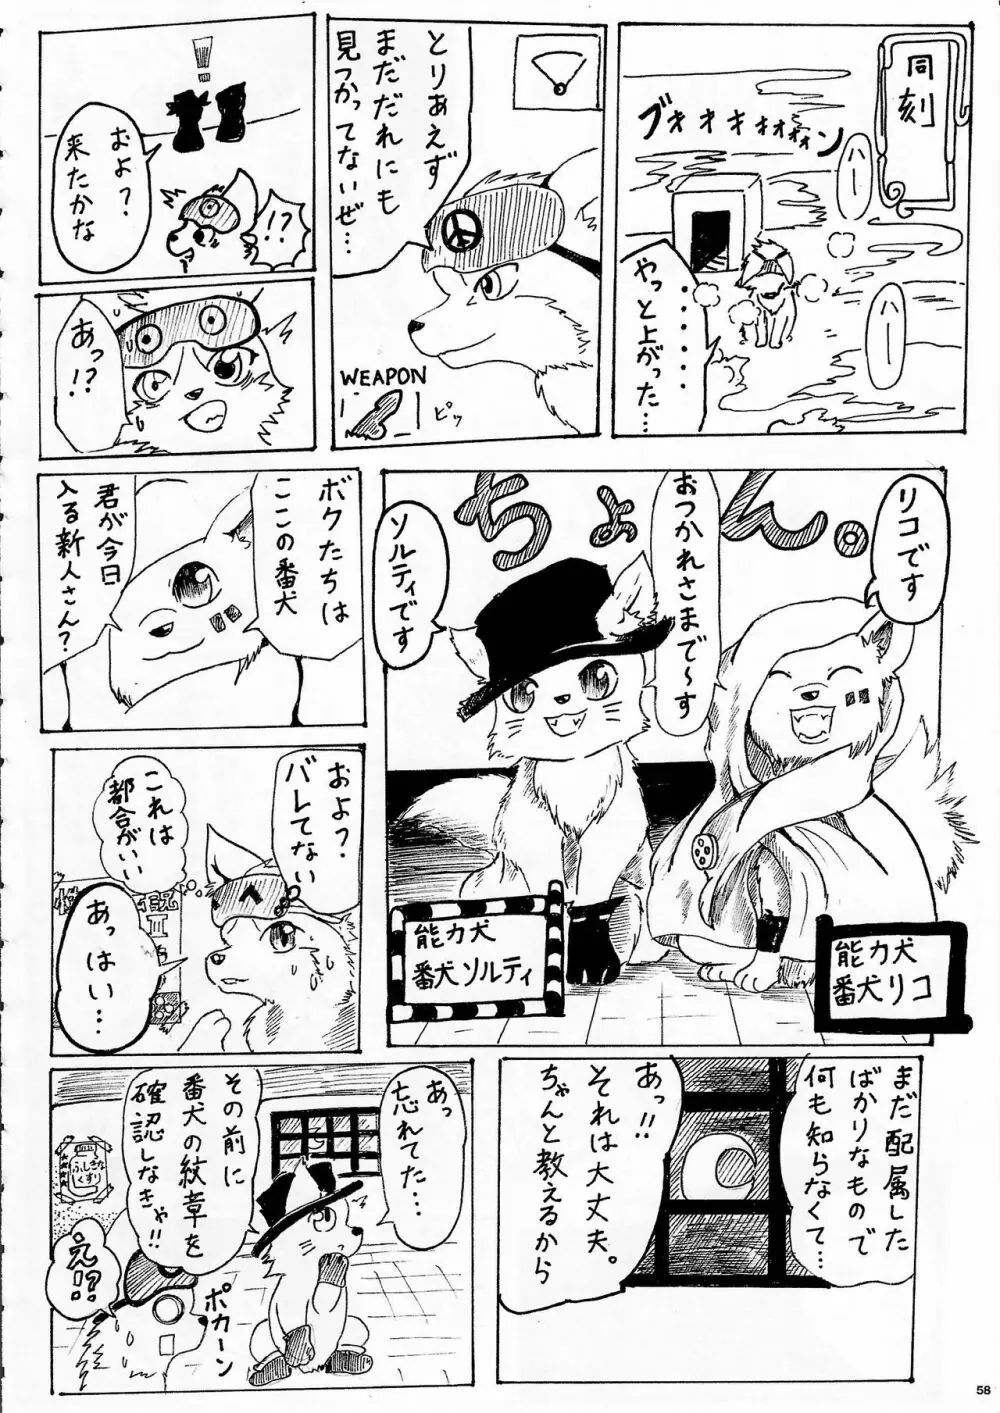 同刻
ブオオオオオオオン
ハー
ハー
・・・・・
やっと上がった…
とりあえず
まだだれにも
見つかってないぜ…
WEAPON
ピッ
!
およ？
来たかな
!?
あっ!?
ちょん。
リコです
おつかれさまで〜す
ソルティです
能力犬
番犬リコ
能力犬
番犬ソルティ
ボクたちは
ここの番犬
君が今日
入る新人さん？
およ？
バレてない
これは
都合がいい
あっはい…
まだ配属した
ばかりなもので
何も知らなくて…
あっ!!
それは大丈夫。
ちゃんと教えるから
あっ
忘れてた…
その前に
番犬の紋章を
確認しなきゃ!!
ポカーン
え!!?
ふしぎな
くすり
58